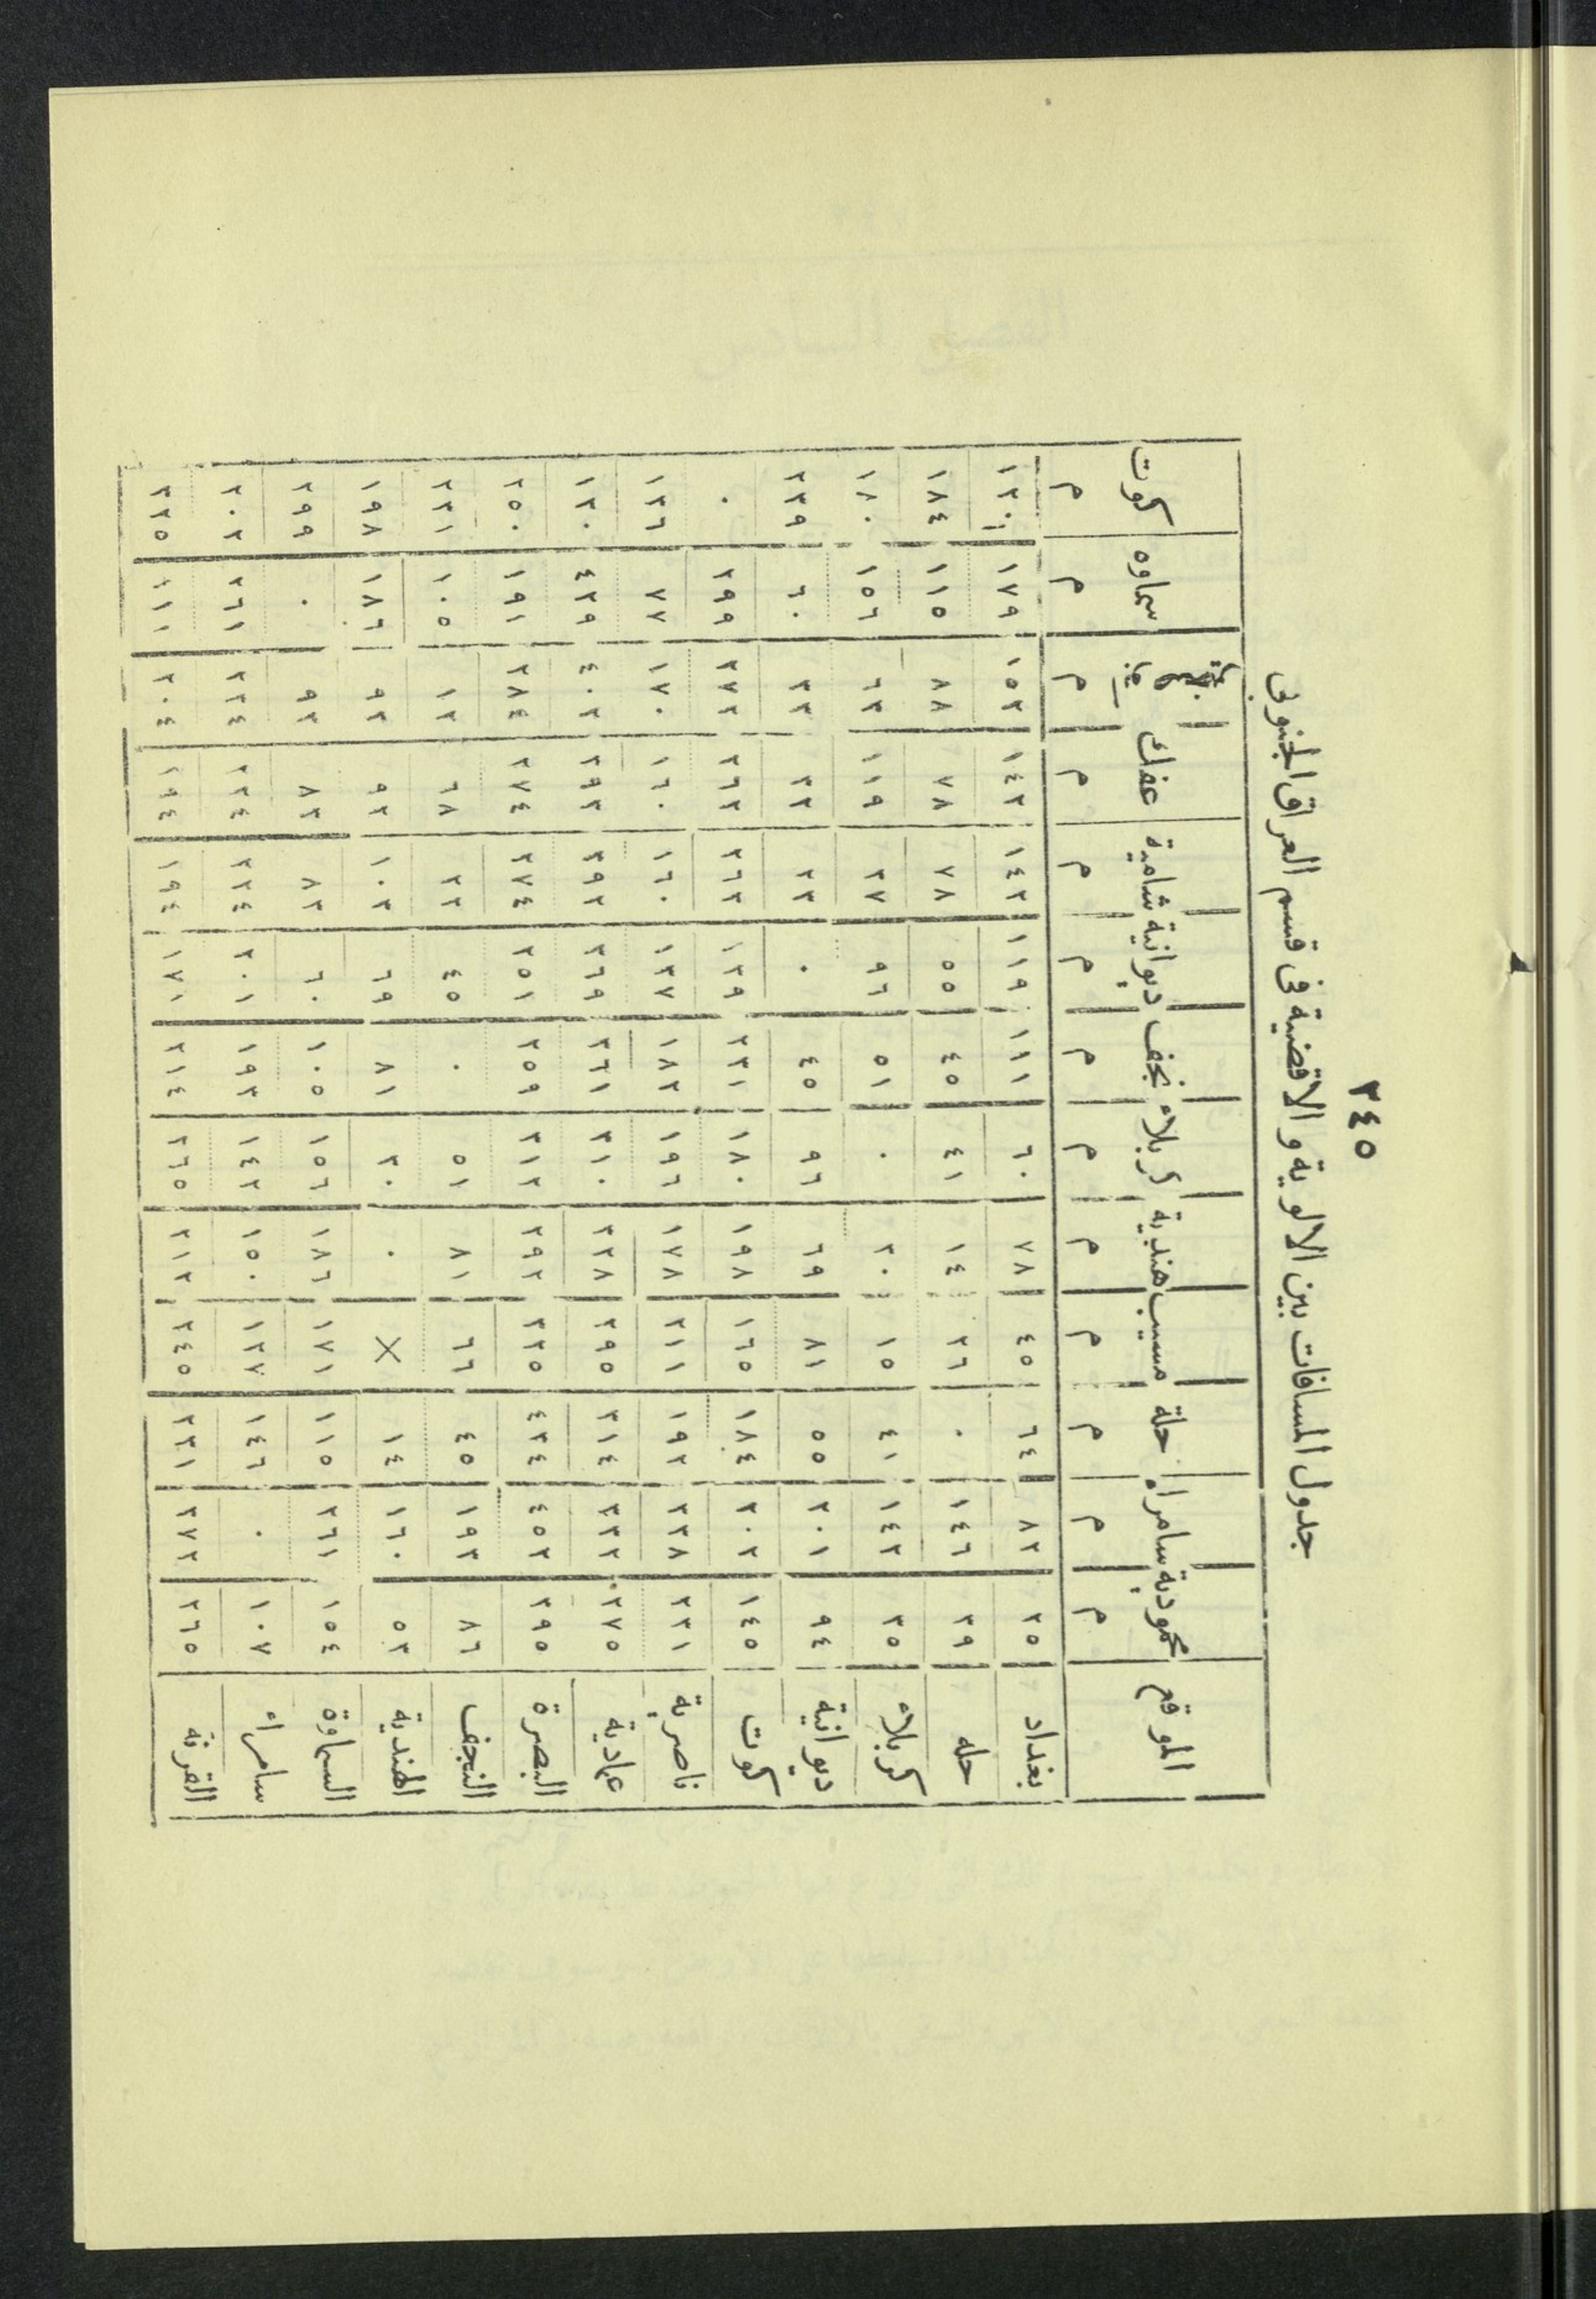 ٢٤٥
جدول المسافات بين الالوية والاقضية فى قسم العراق الجنوبى
الموقع محمودية سامراء حلة مسيب هندية كربلاء نجف ديوانية شامية عفك سماوه كوت
م م م م م م م م م م م م م
بغداد ٢٥ ٨٢ ٦٤ ٤٥ ٧٨ ٦٠ ١١١ ١١٩ ١٤٢ ١٤٢ ١٥٢ ١٧٩ ١٢٠
حله ٣٩ ١٤٦ ٠ ٢٦ ١٤ ٤١ ٤٥ ٥٥ ٧٨ ٧٨ ٨٨ ١١٥ ١٨٤
كربلاء ٣٥ ١٤٢ ٤١ ١٥ ٣٠ ٠ ٥١ ٩٦ ٣٧ ١١٩ ٦٣ ١٥٦ ١٨٠
ديوانية ٩٤ ٢٠١ ٥٥ ٨١ ٦٩ ٩٦ ٤٥ ٠ ٢٣ ٢٣ ٣٣ ٦٠ ٢٣٩
كوت ١٤٥ ٢٠٢ ١٨٤ ١٦٥ ١٩٨ ١٨٠ ٢٣١ ١٣٩ ٢٦٢ ٢٦٢ ٢٧٢ ٢٩٩ ٠
ناصرية ٢٣١ ٢٣٨ ١٩٢ ٢١١ ١٧٨ ١٩٦ ١٨٢ ١٣٧ ١٦٠ ١٦٠ ١٧٠ ٧٧ ١٣٦
عمادية ٢٧٥ ٣٣٢ ٣١٤ ٢٩٥ ٣٢٨ ٣١٠ ٣٦١ ٣٦٩ ٣٩٢ ٣٩٢ ٤٠٢ ٤٢٩ ١٣٠
البصرة ٣٩٥ ٤٥٢ ٤٣٤ ٣٣٥ ٢٩٢ ٣١٢ ٢٥٩ ٢٥١ ٢٧٤ ٢٧٤ ٢٨٤ ١٩١ ٢٥٠
النجف ٨٦ ١٩٣ ٤٥ ٦٦ ٨١ ٥١ ٠ ٤٥ ٢٢ ٦٨ ١٢ ١٠٥ ٢٣١
الهندية ٥٣ ١٦٠ ١٤ X ٠ ٣٠ ٨١ ٦٩ ١٠٣ ٩٢ ٩٣ ١٨٦ ١٩٨
السماوة ١٥٤ ٢٦١ ١١٥ ١٧١ ١٨٦ ١٥٦ ١٠٥ ٦٠ ٨٣ ٨٣ ٩٣ ٠ ٢٩٩
سامراء ١٠٧ ٠ ١٤٦ ١٢٧ ١٥٠ ١٤٢ ١٩٣ ٢٠١ ٢٢٤ ٢٢٤ ٢٣٤ ٢٦١ ٢٠٢
القرنة ٢٦٥ ٣٧٢ ٢٣١ ٢٤٥ ٢١٢ ٢٦٥ ٢١٤ ١٧١ ١٩٤ ١٩٤ ٢٠٤ ١١١ ٣٣٥